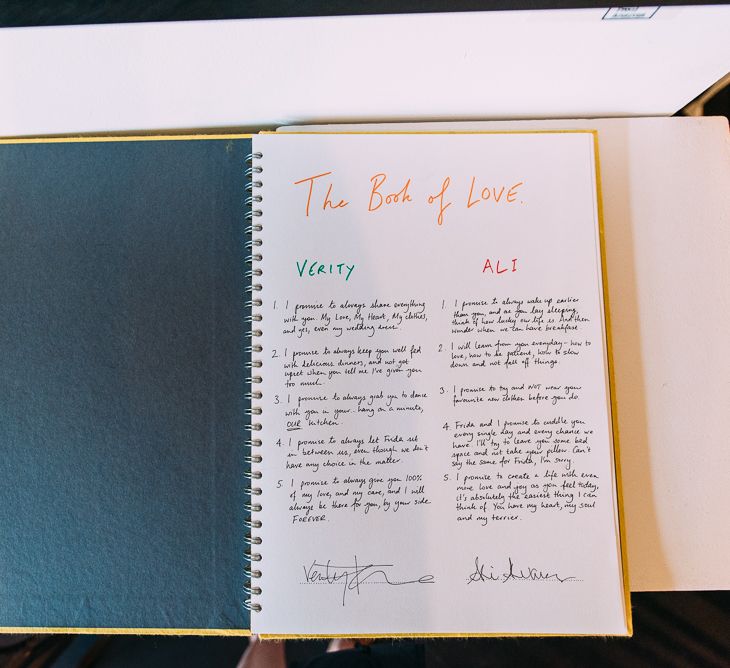 The Book of LOVE.
VERITY
1. I promise to always share everything
with you. My Love, My Heart, My clothes,
and yes, even my wedding dress.
2. I promise to always keep you well fed
with delicious dinners, and not get
upset when you tell me I've given you
too much.
3. I promise to always grab you to dance
with you in your.. hang on a minute,
OUR kitchen.
4. I promise to always let Frida sit
in between us, even though we don't
have any choice in the matter.
5. I promise to always give you 100%
of my love, and my care, and I will
always be there for you, by your side
FOREVER.
ALI
1. I promise to always wake up earlier
than you, and as you lay sleeping,
think of how lucky our life is. And then
wonder when we can have breakfast.
2. I will learn from you everyday - how to
love, how to be patient, how to slow
down and not fall off things
3. I promise to try and NOT wear your
favourite new clothes before you do.
4. Frida and I promise to cuddle you
every single day and every chance we
have. I'll try to leave you some bed
space and not take your pillow. Can't
say the same for Frida, I'm sorry.
5. I promise to create a life with even
more love and joy as you feel today,
it's absolutely the easiest thing I can
think of. You have my heart, my soul
and my terrier.